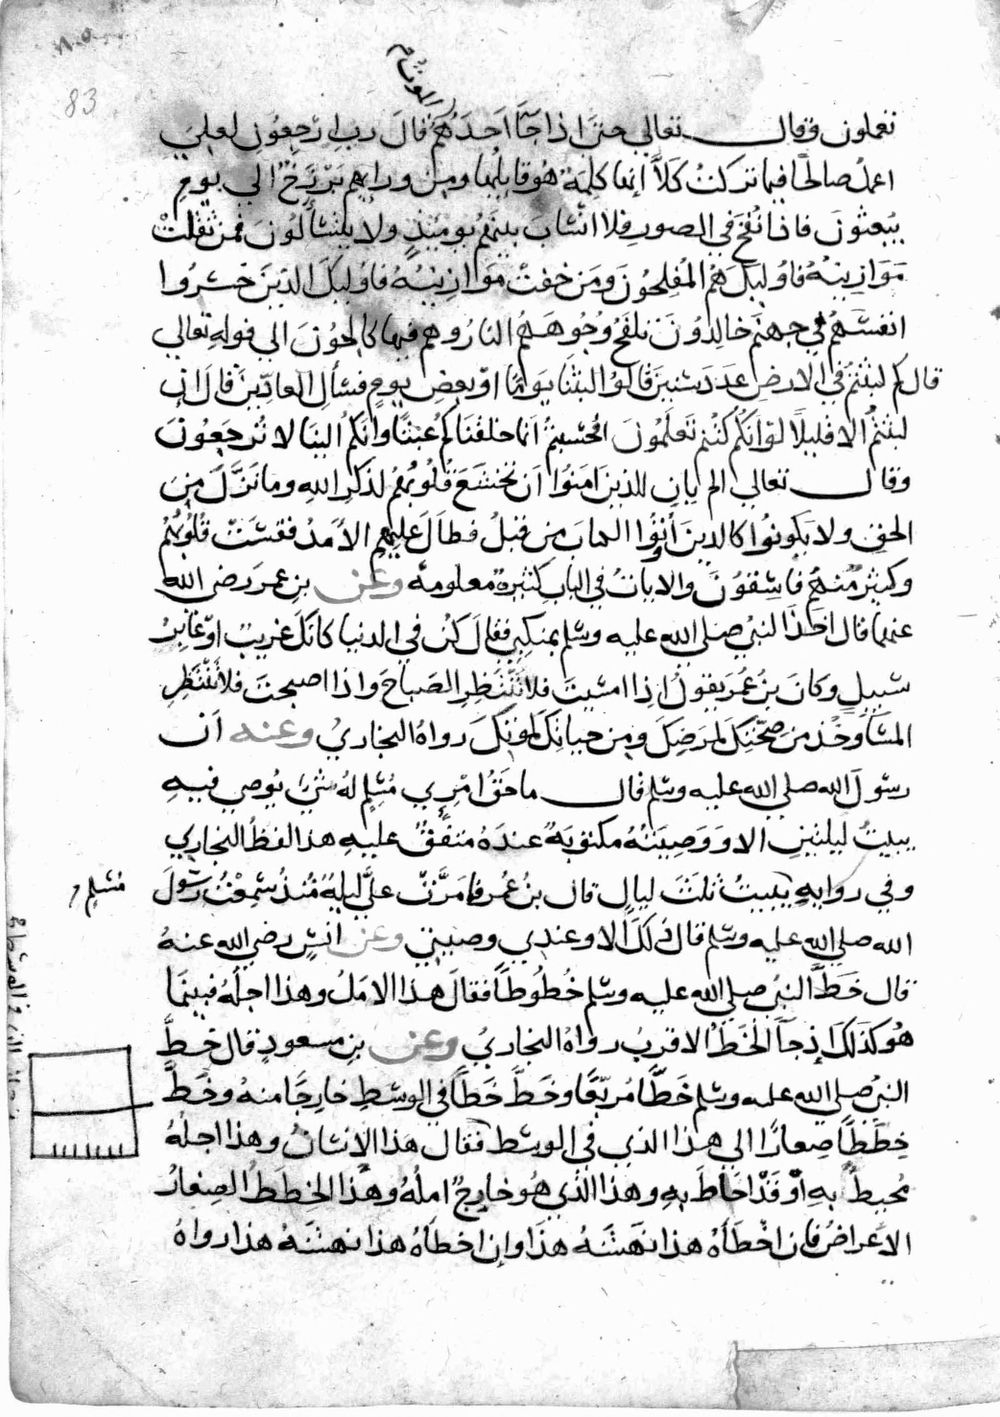 ٨٥
83
الموت
تعملون وقال تعالى حتى اذا جَآ اَحدَهُمُ قالَ ربِ ارْجِعُونِ لعلي
اعملُ صالحًا فيما تركتُ كَلاَّ إنها كلِمَةٌ هُوَ قايلها ومِنْ ورايهِم بَرْزَخٌ الي يومِ
يُبعثونَ فاذا نُفخَ في الصورِ فلا انْسَابَ بينَهُم يومئِذٍ ولا يتساَلُونَ فمن ثقُلتْ
مَوَازِينُهُ فاُوليكَ هُمُ المُفلِحُونَ ومَن خفتْ مَوَازِينُهُ فاوليكَ الذينَ خسِرُوا
انفسَهُم في جهنمَ خالِدُونَ تلفحُ وُجُوهَهُمُ النارُ وهم فيها كالحُونَ الي قولهِ تعالي
قال كم لبثتُم في الارضِ عَدَدَ سنينَ قالُوا لبثْنا يَومًا اوْ بعضَ يومٍ فسْألِ العادّينَ قالَ ان
لبثتُمُ الا قليلاً لوْ اَنكُم كُنتم تَعلَمُونَ افحَسِبتُم اَنما خلقناكم عبَثًا وانكُم الينَا لا تُرجَعُونَ
وقال تعالي الم يانِ للذينَ امَنُوا اَن تخشَعَ قُلُوبُهُم لذكرِ اللهِ وما نَزَّلَ مِن
الحقِ ولا يَكونُوا كالذينَ أُوتُوا الكتابَ مِن قبلُ فطالَ عليهم الأمَدُ فقسَتْ قُلُوبُهُمْ
وكثيرٌ مِنهُمْ فاسِقُونَ والاياتُ في البابِ كثيرةٌ معلومه وعن بنِ عمرَ رضي الله
عنهما قال اخَذَ النبيُ صلي الله عليه وسلم بمنكبِي فقال كنْ في الدنيا كانكَ غريبٌ اوْ عابِرُ
سَبيلٍ وكانَ بنُ عمرَ يقولُ اذا امسيتَ فلا تنْتَظِرِ الصَباحَ واذا اصبحتَ فلا تنتظِرِ
المسَآ وخُذْ من صحّتِكَ لمرَضِكَ ومِن حياتِكَ لموتِكَ رواهُ البخاريُ وعنه ان
رسولَ الله صلي الله عليه وسلم قال ما حَقُ امْرِي مُسْلمٍ لهُ شيٌ يُوصي فيهِ
يبيتُ ليلتينِ الا وَوَصِيَتُهُ مكتوبَةٌ عندَهُ متفَقٌ عليهِ هذا لفظُ البخاري
وفي روايةٍ يَبيتُ ثلثَ ليالٍ قال بنُ عُمرَ فامَرَّتْ عليَّ ليلةٌ مُنذُ سَمِعتُ رَسُولَ
لمسلم
الله صلي الله عليه وسلم قالَ ذلكَ الا وعندي وصيتي وعن انسٍ رضي الله عنهُ
قال خَطَّ النبيُ صلي الله عليه وسلم خُطُوطًا فقالَ هذا الامَلُ وهذا اجلُهُ فبينَما
هُوَ كذلكَ إذ جآ الخَطُ الاقربُ رواهُ البخاريُ وعن بنِ مسعودٍ قال خطَّ
النبيُ صلي الله عليه وسلم خَطًّا مُربّعًا وخَطَّ خَطًّا في الوسَطِ خارِجًا منهُ وخَطَّ
خِطَطًا صِغارًا الي هذا الذي في الوسَط فقال هذا الانسانُ وهذا اجلُهُ
مُحيطٌ بهِ أوْ قَدْ احَاطَ بهِ وهذا الذي هو خارِجٌ املُهُ وهذه الخِططُ الصِغارُ
الاَعراضُ فان اخْطَأهُ هذا نَهَشَهُ هذا وإن اخطأهُ هذا نهشَهُ هذا رواهُ